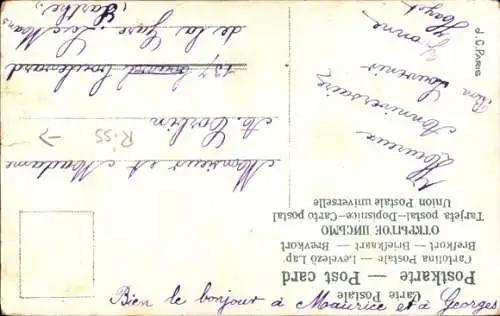 Carte Postale
Postkarte — Post card
Cartolina Postale — Levelező Lap
Brefkort — Briefkaart — Brevkort
ОТКРЫТОЕ ПИСЬМО
Tarjeta postal–Dopisnice–Carto postal
Union Postale universelle
Monsieur et Madame
A. Corbin
R:SS →
137 boulevard
de la Gare. Le Mans
(Sarthe)
Heureux
Anniversaire
Bon Souvenir
Yvonne
J.C. PARIS
Bien le bonjour à Maurice et à Georges